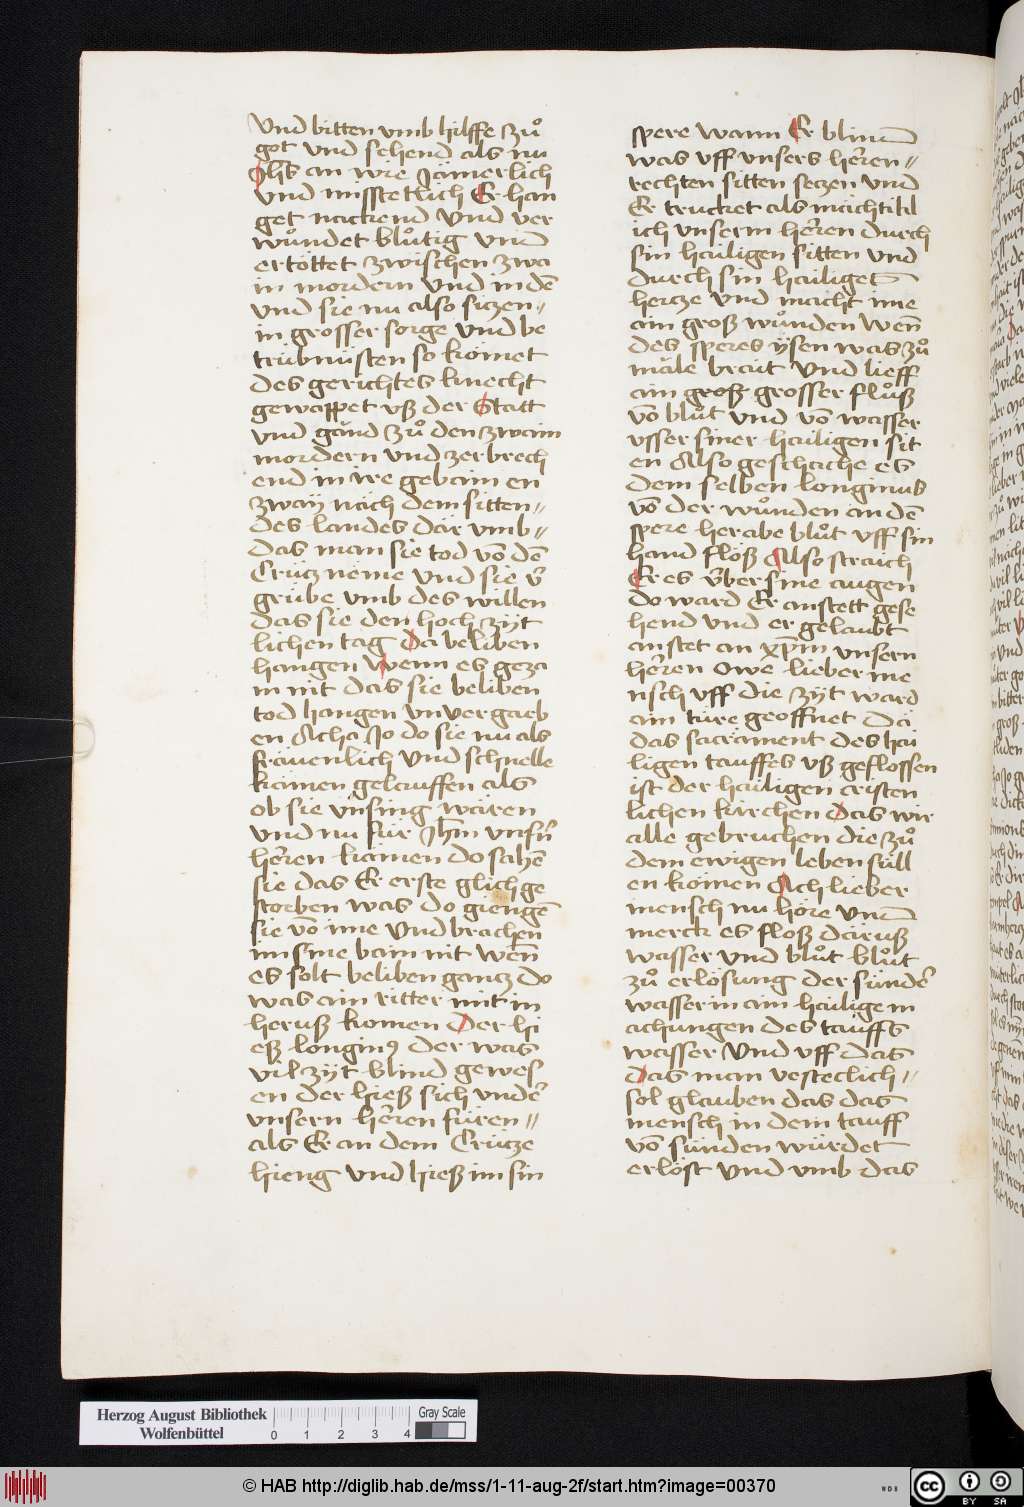 Vnd bitten vmb hilffe zuͦ
got vnd sehend als nu
Jhs an wie Jämerlich
vnd missetlich Er han
get nackend vnd ver
wuͦndet bluͦtig vnd
ertöttet zwischen zwa
in mordern vnd in dē
vnd sie nu also sitzen〃
in grosser sorge vnd be
trübnüsten so kömet
des gerichtes knecht
gewappet vß der Statt
vnd gänd zuͦ den zwaim
mordern vnd zerbrech
end in ire gebain en
zwaÿ näch dem sitten〃
des landes där vmb〃
das man sie tod võ dē
Crütz neme vnd sie v̄
grübe vmb des willen
das sie den hoch zÿt
lichen tag Da beliben
hangen Wenn es geza
m nit das sie beliben
tod hangen vnuergrab
en Acha Jo do sie nu als
fräuenlich vnd schnelle
kämen gelauffen als
ob sie vnsinig wären
vnd nu für Jhm̄ vnsn̄
herren kämen do sahē
sie das Er erste glich ge
storben was do giengē
sie võ ime vnd brachen
im sine bain nit wen̄
es solt beliben gantz do
was aim ritter mit in
heruß komen Der hi
eß longin9 der was
vil zÿt blind gewes
en der hieß sich vnder
vnsern herren füren〃
als Er an dem Crütze
hieng vnd hieß im sin
spere wann Er blind
was vff vnsers herren〃
rechten sitten setzen vnd
Er trucket als mächtikl
ich vnserm herren durch
sin hailigen sitten vnd
durch sin hailiget
hertze vnd macht ime
ain groß wuͦnden wen̄
des speres ÿsen was zuͦ
mäle brait vnd lieff
ain groß grosser fluͦß
võ bluͦt vnd võ wasser
vsser siner hailigen sit
en Also geschache es
dem selben longinus
võ der wuͦnden an dē
spere herabe bluͦt vff sin
hand flöß Also straich
Er es v̈ber sine augen
do ward Er anstett gese
hend vnd er gelaubt
anstet an xp̄m vnsern
herren owe lieber me
nsch vff die zÿt ward
ain türe geoffnet Dä
das sacräment des hai
ligen tauffes vß geflossen
ist der hailigen cristen
lichen kirchen Das wir
alle gebruchen die zuͦ
dem ewigen leben süll
en komen Ach lieber
mensch nu höre vnd
merck es floß däruß
wasser vnd bluͦt bluͦt
zuͦ erlösung der sünder
wasser in aim hailige m
achungen des tauffs
wasser vnd vff das
das man vesteclich〃
sol glauben das das
mensch in dem tauff
võ sünden würdet
erlöst vnd vmb das
Herzog August Bibliothek
Wolfenbüttel
0 1 2 3 4
Gray Scale
© HAB http://diglib.hab.de/mss/1-11-aug-2f/start.htm?image=00370
WDB
cc BY SA